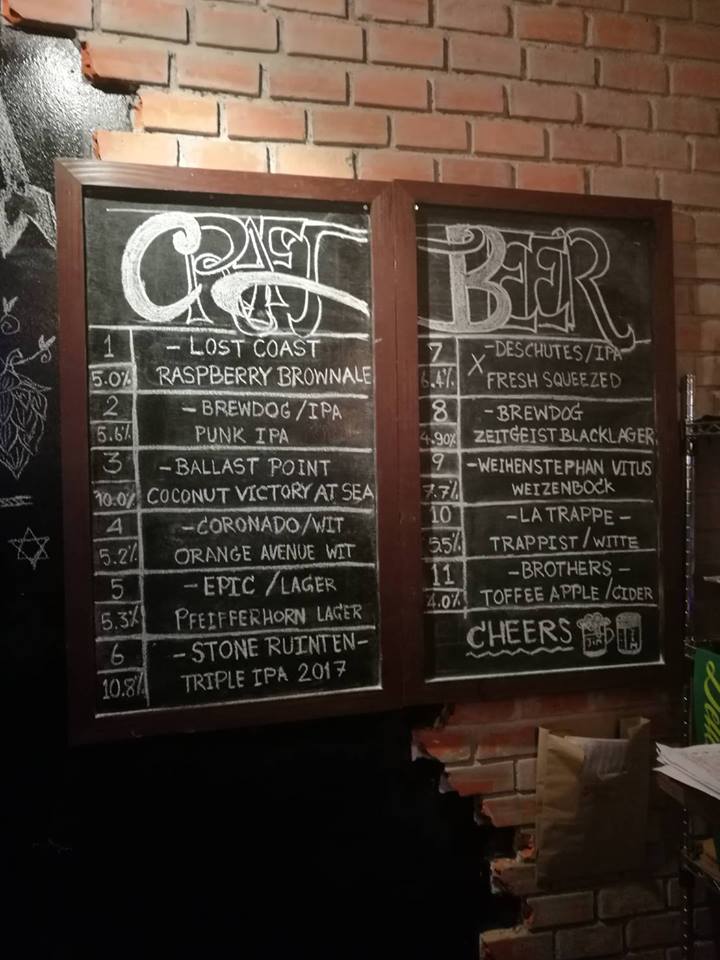 CRAFT
1 - LOST COAST
5.0% RASPBERRY BROWNALE
2 - BREWDOG/IPA
5.6% PUNK IPA
3 - BALLAST POINT
10.0% COCONUT VICTORY AT SEA
4 - CORONADO/WIT
5.2% ORANGE AVENUE WIT
5 - EPIC /LAGER
5.3% PFEIFFERHORN LAGER
6 - STONE RUINTEN-
10.8% TRIPLE IPA 2017
BEER
7 X - DESCHUTES/IPA
6.4% FRESH SQUEEZED
8 - BREWDOG
4.90% ZEITGEIST BLACKLAGER
9 - WEIHENSTEPHAN VITUS
7.7% WEIZENBOCK
10 - LA TRAPPE -
5.5% TRAPPIST/WITTE
11 - BROTHERS -
4.0% TOFFEE APPLE/CIDER
CHEERS